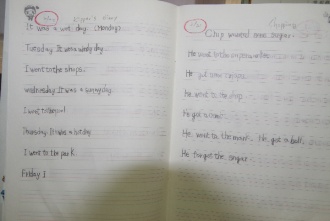 It was a wet day. (Monday)
Tuesday It was a windy day.
I went to the shops.
wednesday It was a sunny day.
I went to
Thursday It was a hot day.
I went to the park.
Friday I
Chip wanted some sugar.
He went to the
He got some
He went to the shop
He got a
He went to the He got a ball.
He forgot the sugar